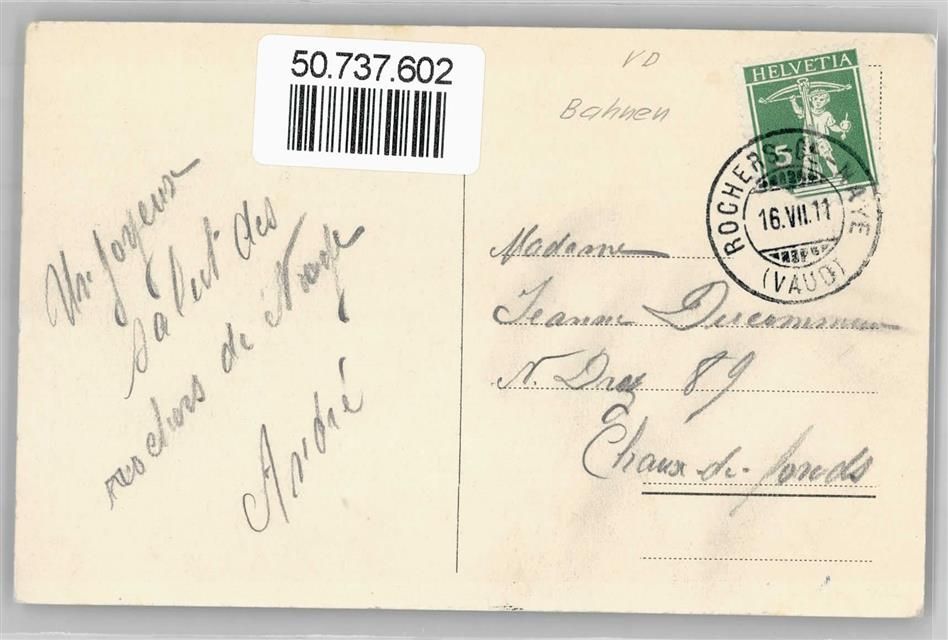 50.737.602
VD
Bahnen
HELVETIA
5
ROCHERS-DE NAYE
16.VII.11
(VAUD)
Un joyeux
salut des
rochers de Naye
André
Madame
Jeanne Ducommun
N. Droz 89
Chaux-de-fonds